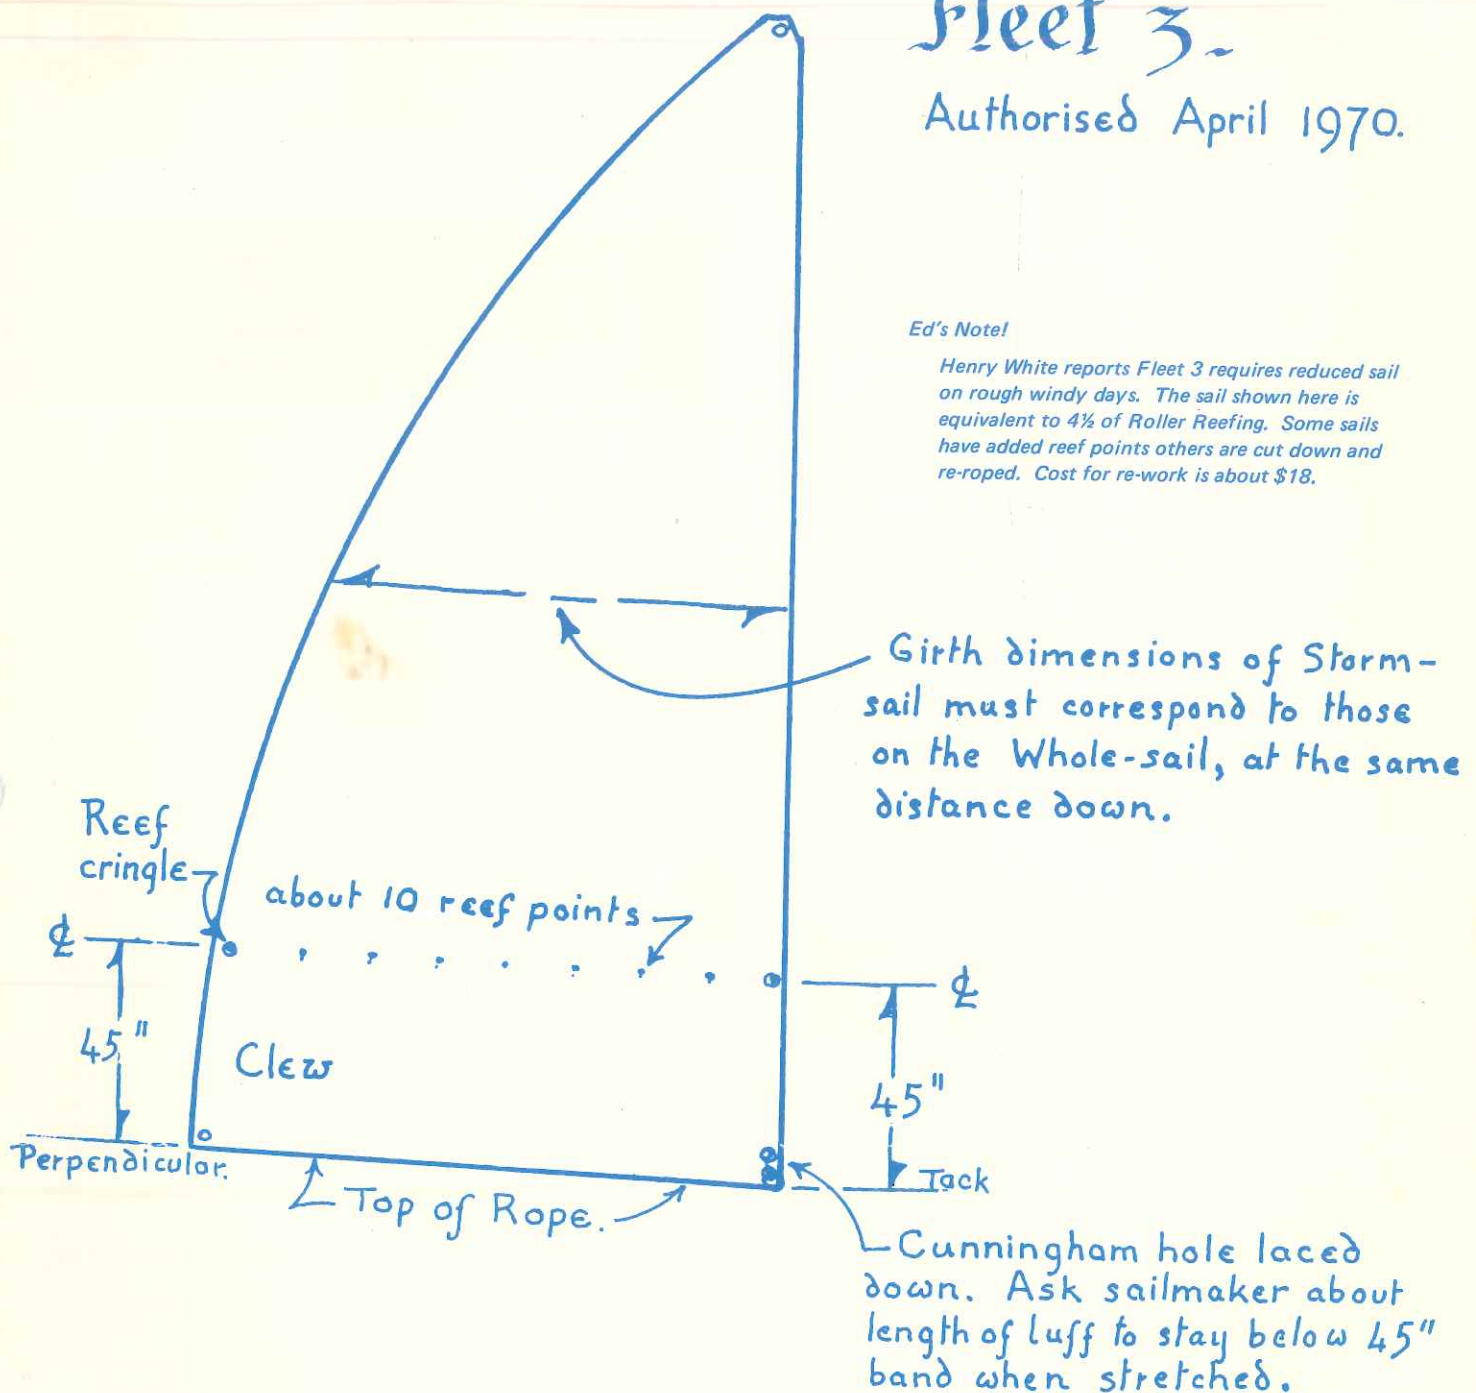 Fleet 3.
Authorised April 1970.
Ed's Note!
Henry White reports Fleet 3 requires reduced sail
on rough windy days. The sail shown here is
equivalent to 4½ of Roller Reefing. Some sails
have added reef points others are cut down and
re-roped. Cost for re-work is about $18.
Girth dimensions of Storm-
sail must correspond to those
on the Whole-sail, at the same
distance down.
Reef
cringle
about 10 reef points
℄
℄
45"
Clew
45"
Perpendicular.
Tack
Top of Rope.
Cunningham hole laced
down. Ask sailmaker about
length of luff to stay below 45"
band when stretched.